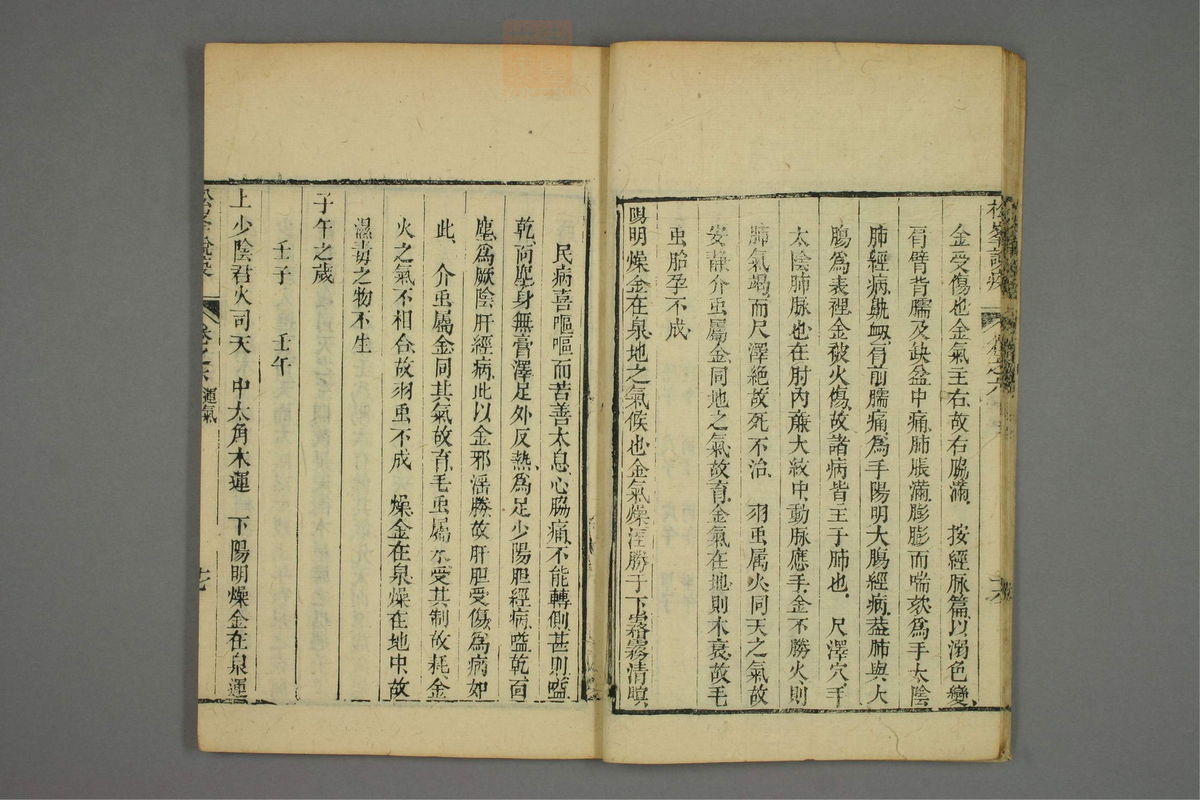 松峯說疫 卷之六
金受傷也金氣主右故右脇滿 按經脉篇以溺色變
肩臂背臑及缺盆中痛肺脹滿膨膨而喘欬爲手太陰
肺經病鼽衂肩前臑痛爲手陽明大腸經病葢肺與大
腸爲表裡金被火傷故諸病皆主于肺也 尺澤穴手
太陰肺脉也在肘內廉大紋中動脉應手金不勝火則
肺氣竭而尺澤絶故死不治 羽䖝属火同天之氣故
安靜介䖝屬金同地之氣故育金氣在地則木衰故毛
䖝胎孕不成
陽明燥金在泉地之氣候也金氣燥淫勝于下霿霧清暝
民病喜嘔嘔而苦善太息心脇痛不能轉側甚則嗌
乾面塵身無膏澤足外反熱爲足少陽胆經病嗌乾面
塵爲厥陰肝經病此以金邪淫勝故肝胆受傷爲病如
此 介䖝屬金同其氣故育毛䖝屬木受其制故耗金
火之氣不相合故羽䖝不成 燥金在泉燥在地中故
濕毒之物不生
子午之歲
壬子 壬午
上少陰君火司天 中太角木運 下陽明燥金在泉運
松峯說疫 卷之六 運氣